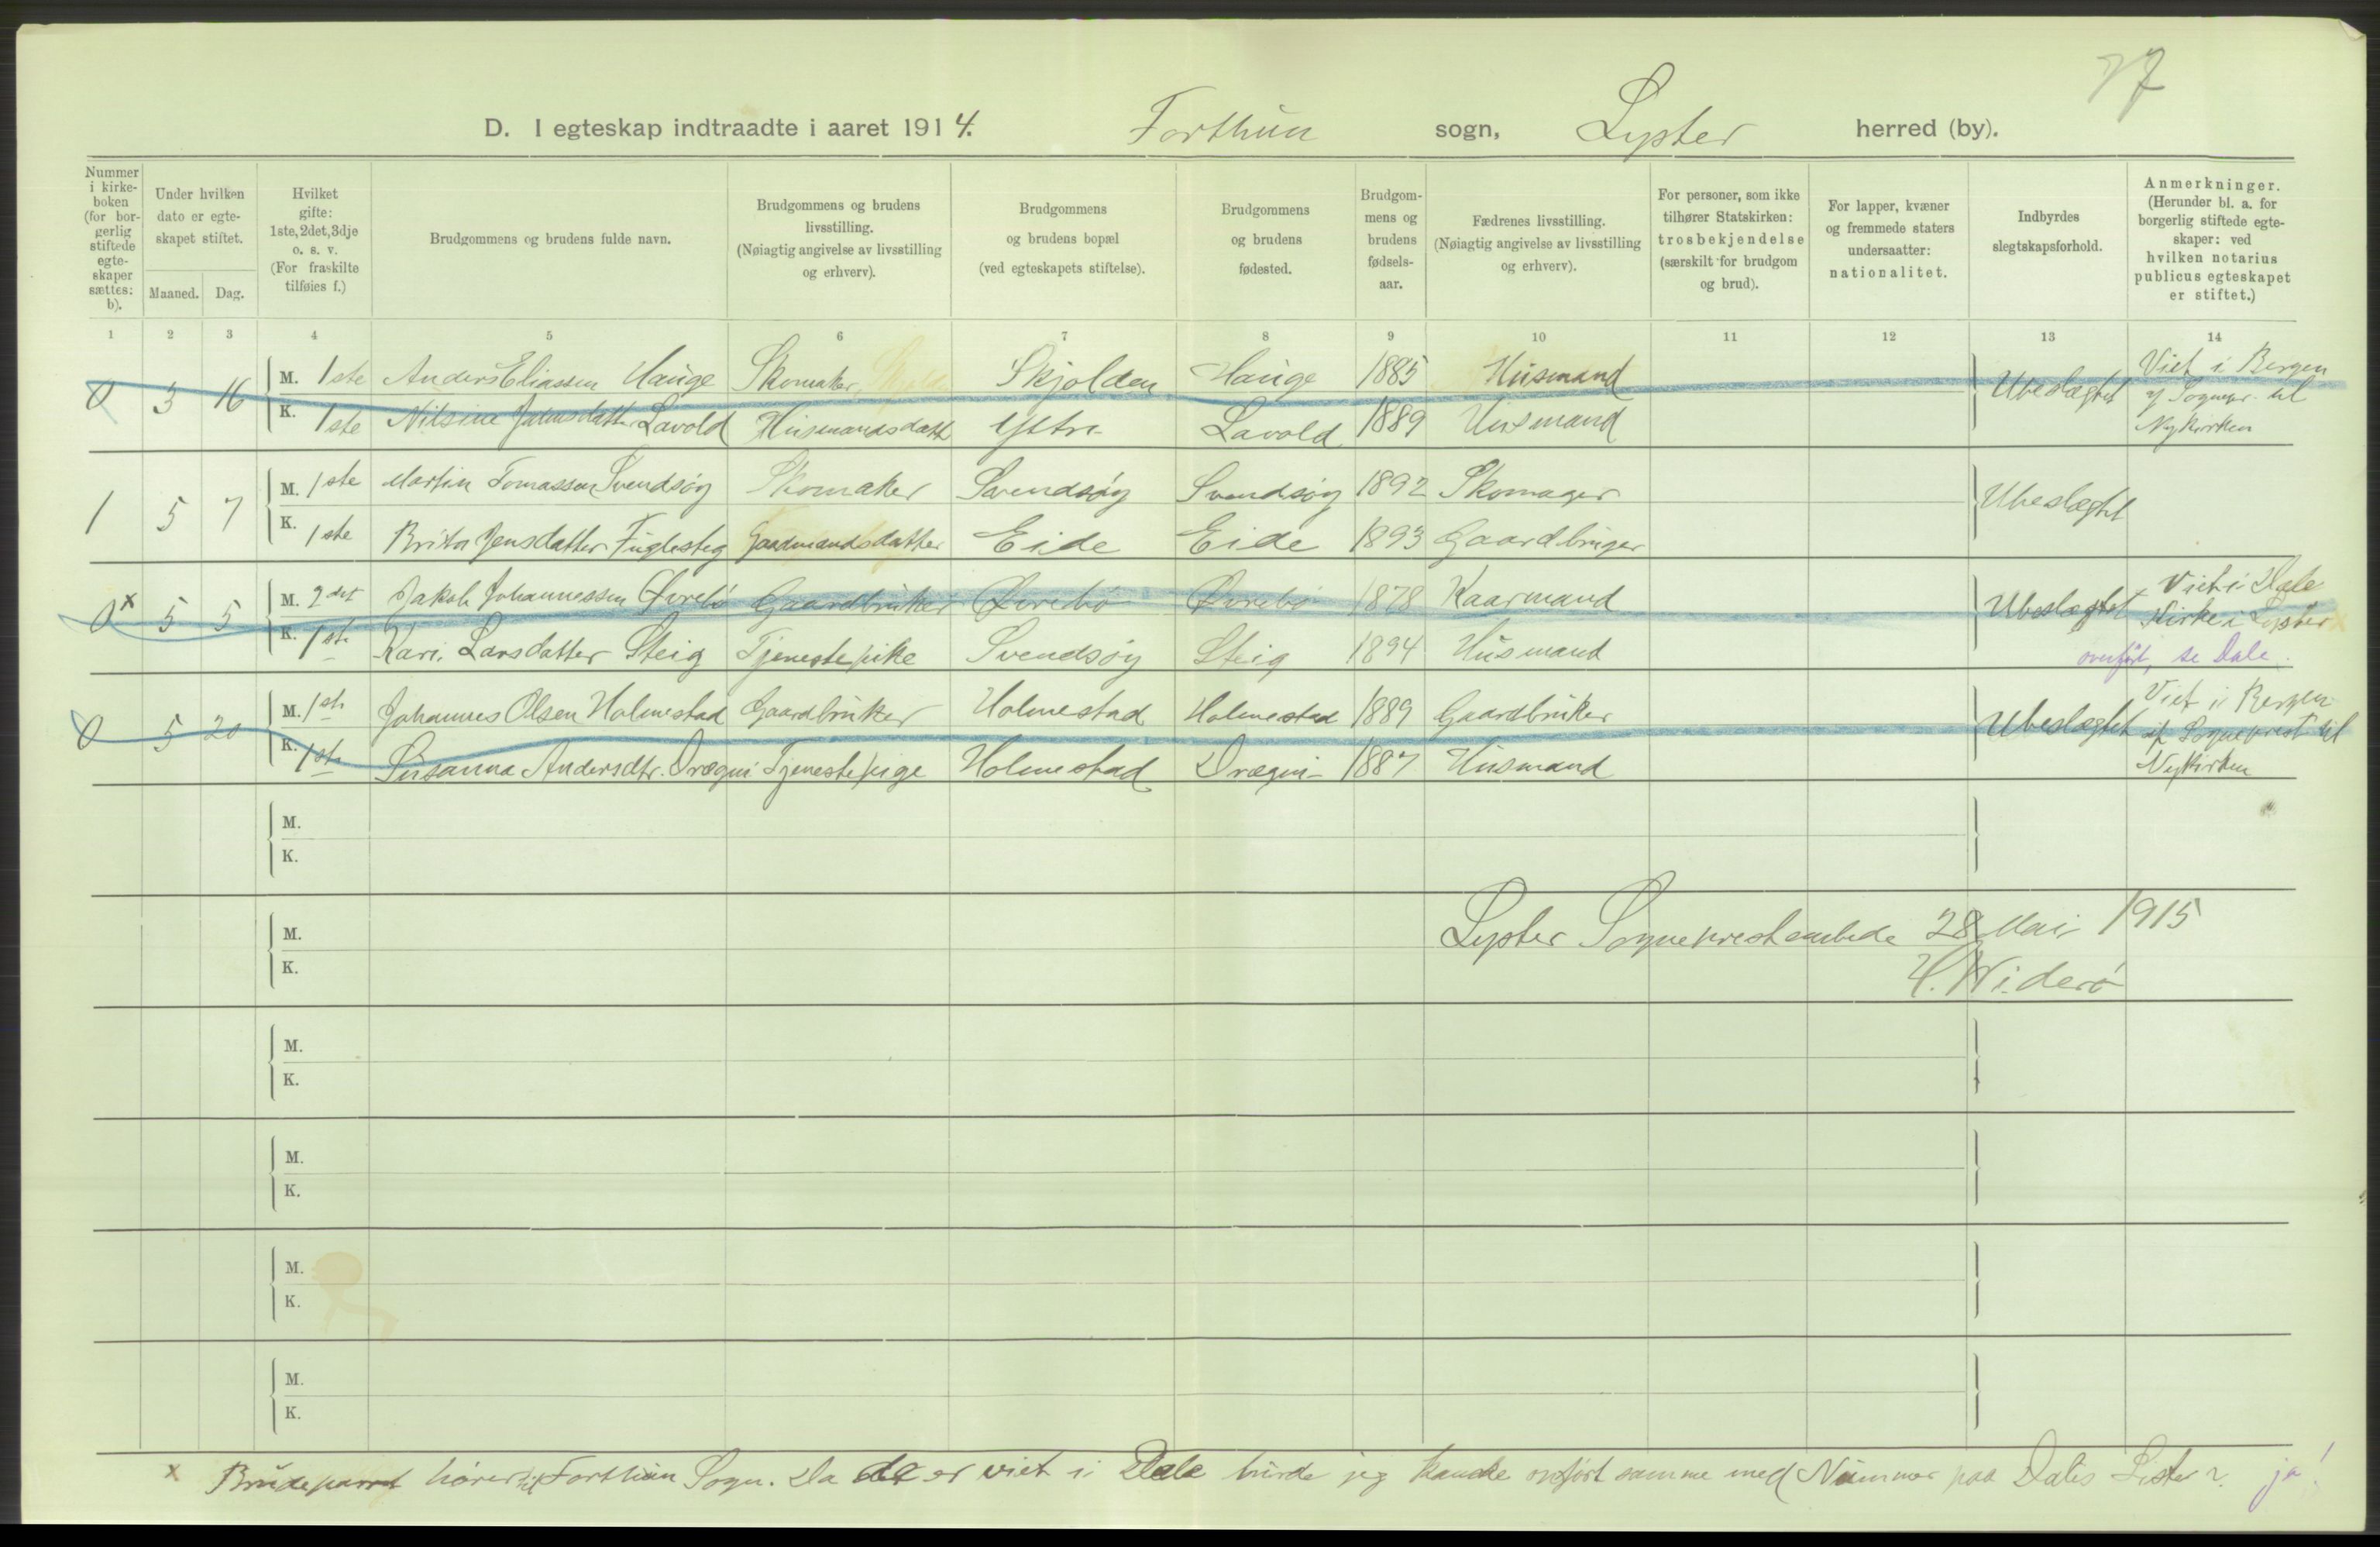 77
D. I egteskap indtraadte i aaret 1914. Forthun sogn, Lyster herred (by).
Nummer i kirke-boken (for bor-gerlig stiftede egte-skaper sættes: b).
Under hvilken dato er egte-skapet stiftet.
Maaned. Dag.
Hvilket gifte: 1ste, 2det, 3dje o. s. v. (For fraskilte tilføies f.)
Brudgommens og brudens fulde navn.
Brudgommens og brudens livsstilling. (Nøiagtig angivelse av livsstilling og erhverv).
Brudgommens og brudens bopæl (ved egteskapets stiftelse).
Brudgommens og brudens fødested.
Brudgom-mens og brudens fødsels-aar.
Fædrenes livsstilling. (Nøiagtig angivelse av livsstilling og erhverv).
For personer, som ikke tilhører Statskirken: trosbekjendelse (særskilt for brudgom og brud).
For lapper, kvæner og fremmede staters undersaatter: nationalitet.
Indbyrdes slegtskapsforhold.
Anmerkninger. (Herunder bl. a. for borgerlig stiftede egte-skaper: ved hvilken notarius publicus egteskapet er stiftet.)
1 2 3 4 5 6 7 8 9 10 11 12 13 14
0 3 16 M. 1ste Anders Eliassen Hauge Skomaker Skjolden Hauge 1885 Husmand Ubeslægtet Viet i Bergen
K. 1ste Nilsine Lavold Husmandsdatt Lavold 1889 Husmand af Sognepr. til
Nykirken
1 5 7 M. 1ste Martin Tomassen Svendsøy Skomaker Svendsøy Svendsøy 1892 Skomager Ubeslægtet
K. 1ste Brita Jensdatter Fuglesteg Gaardmandsdatter Eide Eide 1893 Gaardbruger
0 x 5 5 M. 2det Jakob Johannessen Øvrebø Gaardbruker Øvrebø Øvrebø 1878 Kaarmand Ubeslægtet Viet i Dale
K. 1ste Kari Larsdatter Steig Tjenestepike Svendsøy Steig 1894 Husmand Kirke i Lyster x
overført, se Dale.
0 5 20 M. 1ste Johannes Olsen Holmestad Gaardbruker Holmestad Holmestad 1889 Gaardbruker Ubeslægtet Viet i Bergen
K. 1ste Susanna Andersdtr. Drægni Tjenestepige Holmestad Drægni 1887 Husmand af Sogneprest til
Nykirken
M.
K.
M.
K.
Lyster Sogneprestembede 28 Mai 1915
H. Widerø
M.
K.
M.
K.
M.
K.
M.
K.
x Brudeparret hører til Forthun Sogn. Da de er viet i Dale burde jeg kanske opført samme med Nummer paa Dales Lister? ja!